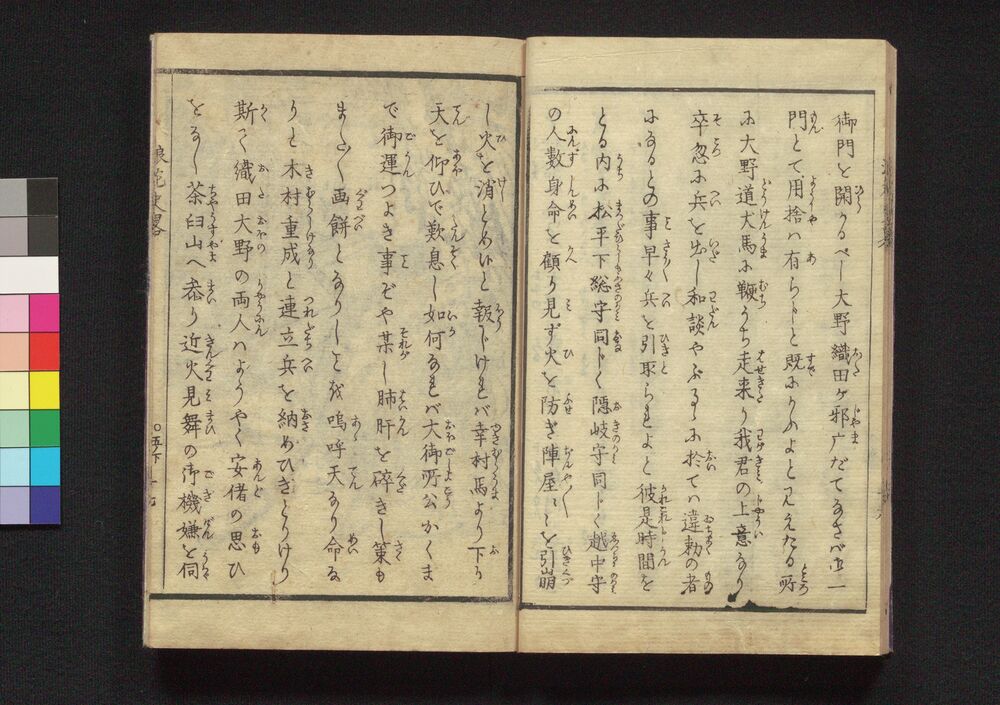 御門を開くべし大野織田が邪广だてなさば迚一
門とて用捨は有らじと既にかふよと見えたる所
に大野道犬馬に鞭うち走来り我君の上意なり
卒忽に兵を出し和談やぶるに於ては違勅の者
になるとの事早々兵を引取られよと彼是時間を
とる内に松平下総守同じく隠岐守同じく越中守
の人数身命を顧り見ず火を防ぎ陣屋〳〵を引崩
し火を消とめしと報じければ幸村馬より下り
天を仰ひで歎息し如何なれば大御所公かくま
で御運つよき事ぞや某し肺肝を砕きし策も
まし〳〵画餅となりしことよ嗚呼天なり命な
りと木村重成と連立兵を納めひきとりけり
斯て織田大野の両人はようやく安堵の思ひ
をなし茶臼山へ参り近火見舞の御機嫌を伺
浪花史畧
○五ノ下